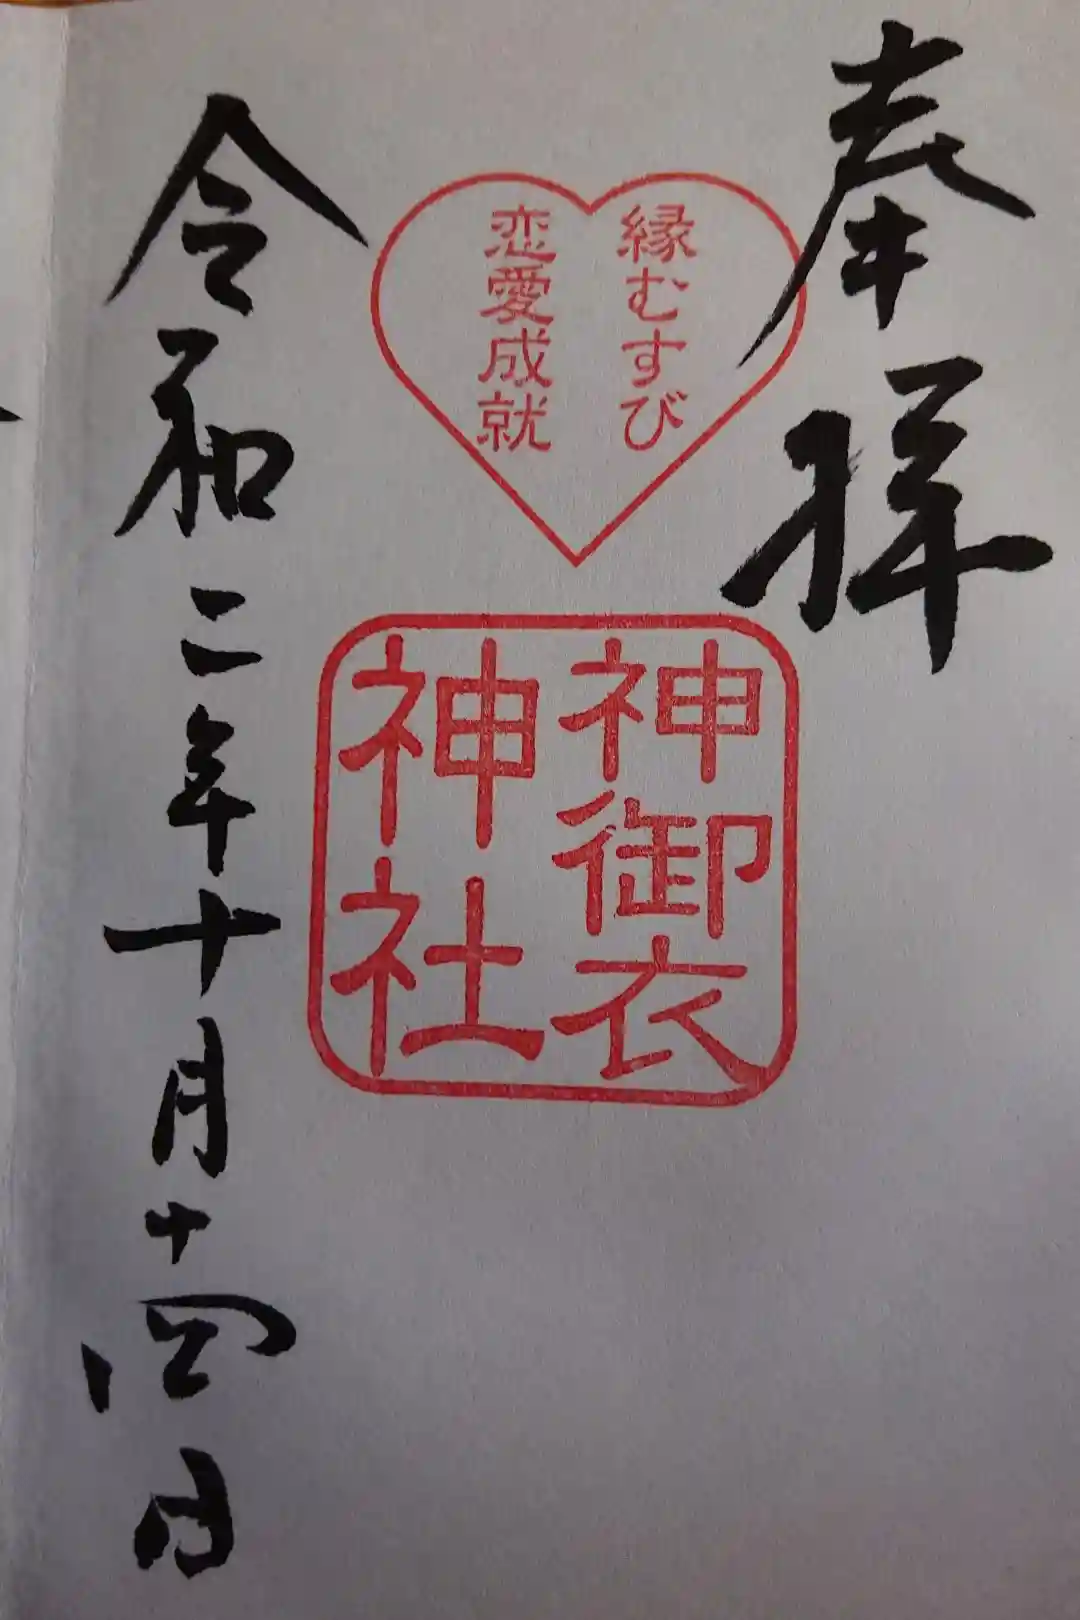 奉拝
縁むすび
恋愛成就
神御衣
神社
令和二年十月十四日